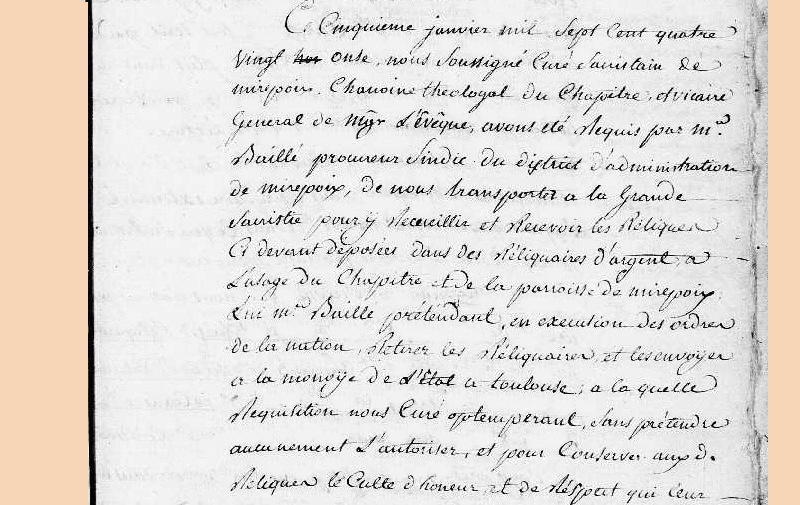 Ce Cinquieme janvier mil Sept Cent quatre
Vingt onse, nous Soussigné Curé Sacristain de
mirepoix, Chanoine theologal du Chapitre, & vicaire
General de Mgr L'Evêque, avons eté Requis par mr.
Baillé procureur Sindic du district d'administration
de mirepoix, de nous transporter a la Grande
Sacristie pour y Receuillir et Recevoir les Réliques
Ci devant déposées dans des Réliquaires d'argent, a
L'usage du Chapitre et de la parroisse de mirepoix;
Lui mr. Baille prétendant, en execution des ordres
de la nation, Retirer les Réliquaires, et les envoyer
a la monoye de L'Etat a toulouse; a la quelle
Requisition nous Curé optemperant, Sans prétendre
aucunement L'autoriser, et pour Conserver aux d.
Reliques le Culte d'honeur, et de Réspect qui leur